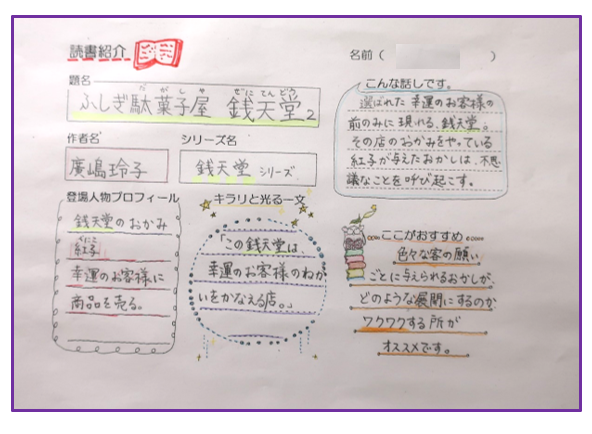 読書紹介
名前（　　　）
題名
だがしや ぜにてんどう
ふしぎ駄菓子屋 銭天堂2
作者名
廣嶋玲子
シリーズ名
銭天堂 シリーズ
こんな話しです。
選ばれた幸運のお客様の
前のみに現れる、銭天堂。
その店のおかみをやっている
紅子が与えたおかしは、不思
議なことを呼び起こす。
登場人物プロフィール
銭天堂のおかみ
べにこ
紅子
幸運のお客様に
商品を売る。
キラリと光る一文
「この銭天堂は、
幸運のお客様のねが
いをかなえる店。」
ここがおすすめ
色々な客の願い
ごとに与えられるおかしが、
どのような展開にするのか
ワクワクする所が
オススメです。